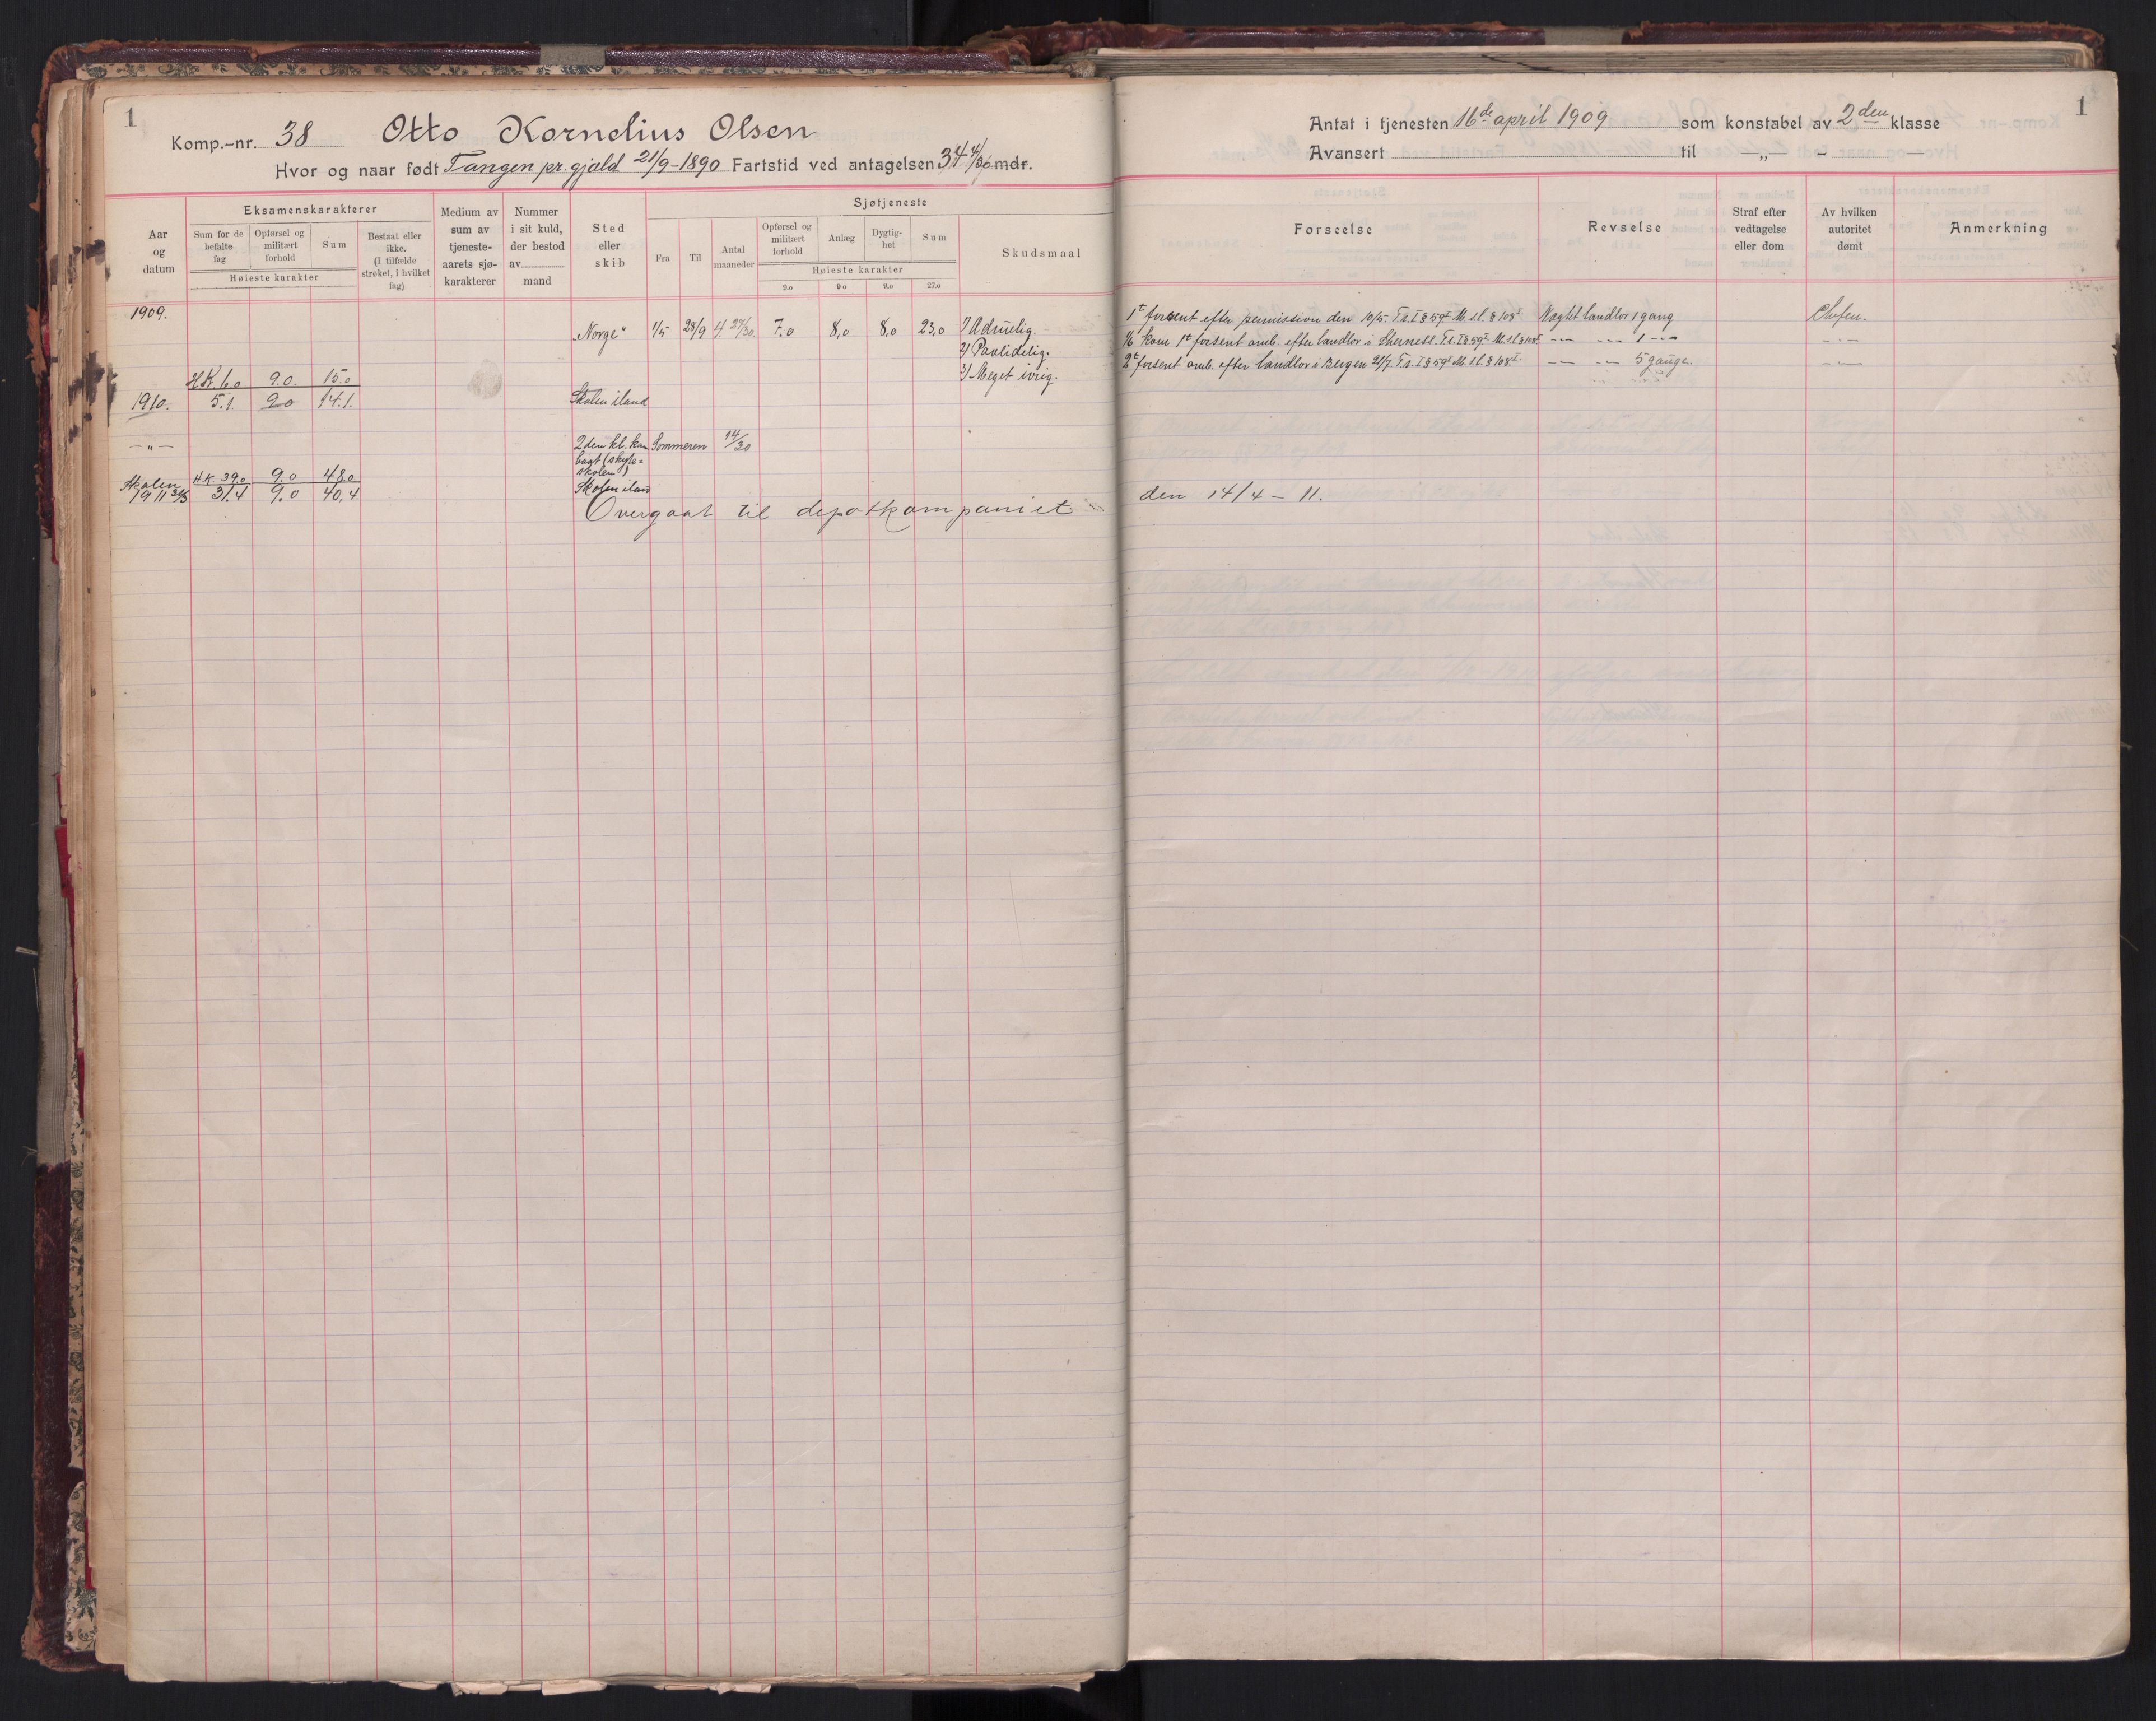 1
Komp.-nr. 38 Otto Kornelius Olsen
Hvor og naar født Tangen pr.gjæld 21/9-1890 Fartstid ved antagelsen 34 4/30 mdr.
Aar og datum
Eksamenskarakterer
Sum for de befalte fag
Opførsel og militært forhold
Sum
Høieste karakter
Bestaat eller ikke. (I tilfælde strøket, i hvilket fag)
Medium av sum av tjeneste-aarets sjø-karakterer
Nummer i sit kuld, der bestod av mand
Sted eller skib
Sjøtjeneste
Fra
Til
Antal maaneder
Opførsel og militært forhold
Anlæg
Dygtig-het
Sum
Høieste karakter
9.0 9.0 9.0 27.0
Skudsmaal
1909.
„Norge“ 1/5 28/9 4 27/30 7.0 8,0 8,0 23,0 1) Ædruelig.
2) Paalidelig.
3) Meget ivrig.
H.K. 6.0 9.0. 15.0
1910. 5.1. 9.0 14.1. Skolen iland
—„— 2den kl. kan Sommeren 14/30
bagt (skyte=
skolen)
Skolen H.K. 39.0 9.0 48.0
1911 31.4 9.0 40,4 Skolen iland
Overgaat til depotkompaniet
1
Antat i tjenesten 16de april 1909 som konstabel av 2den klasse
Avansert til —„— - —
Forseelse
Revselse
Straf efter vedtagelse eller dom
Av hvilken autoritet dømt
Anmerkning
1t forsent efter permission den 10/5. T.r.I § 59I M.s.l. § 108I Nægtet landlov 1 gang Chefen.
1/6 kom 1t forsent omb. efter landlov i Sherness. T.r.I § 59I M.s.l. § 108I —„— —„— 1 —„— —„—
2t forsent omb. efter landlov i Bergen 21/7. T.r.I § 59I M.s.l. § 108I. —„— —„— 5 gange. —„—
den 14/4 - 11.